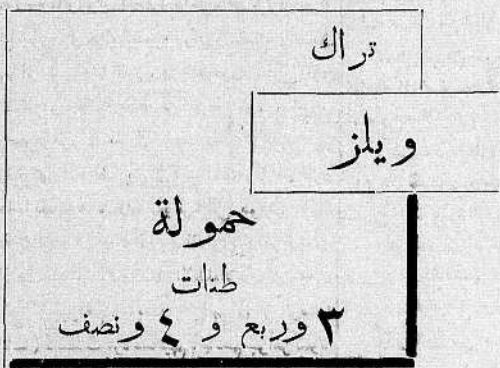 تراك
ويلز
حمولة
طنات
٣ وربع و ٤ ونصف